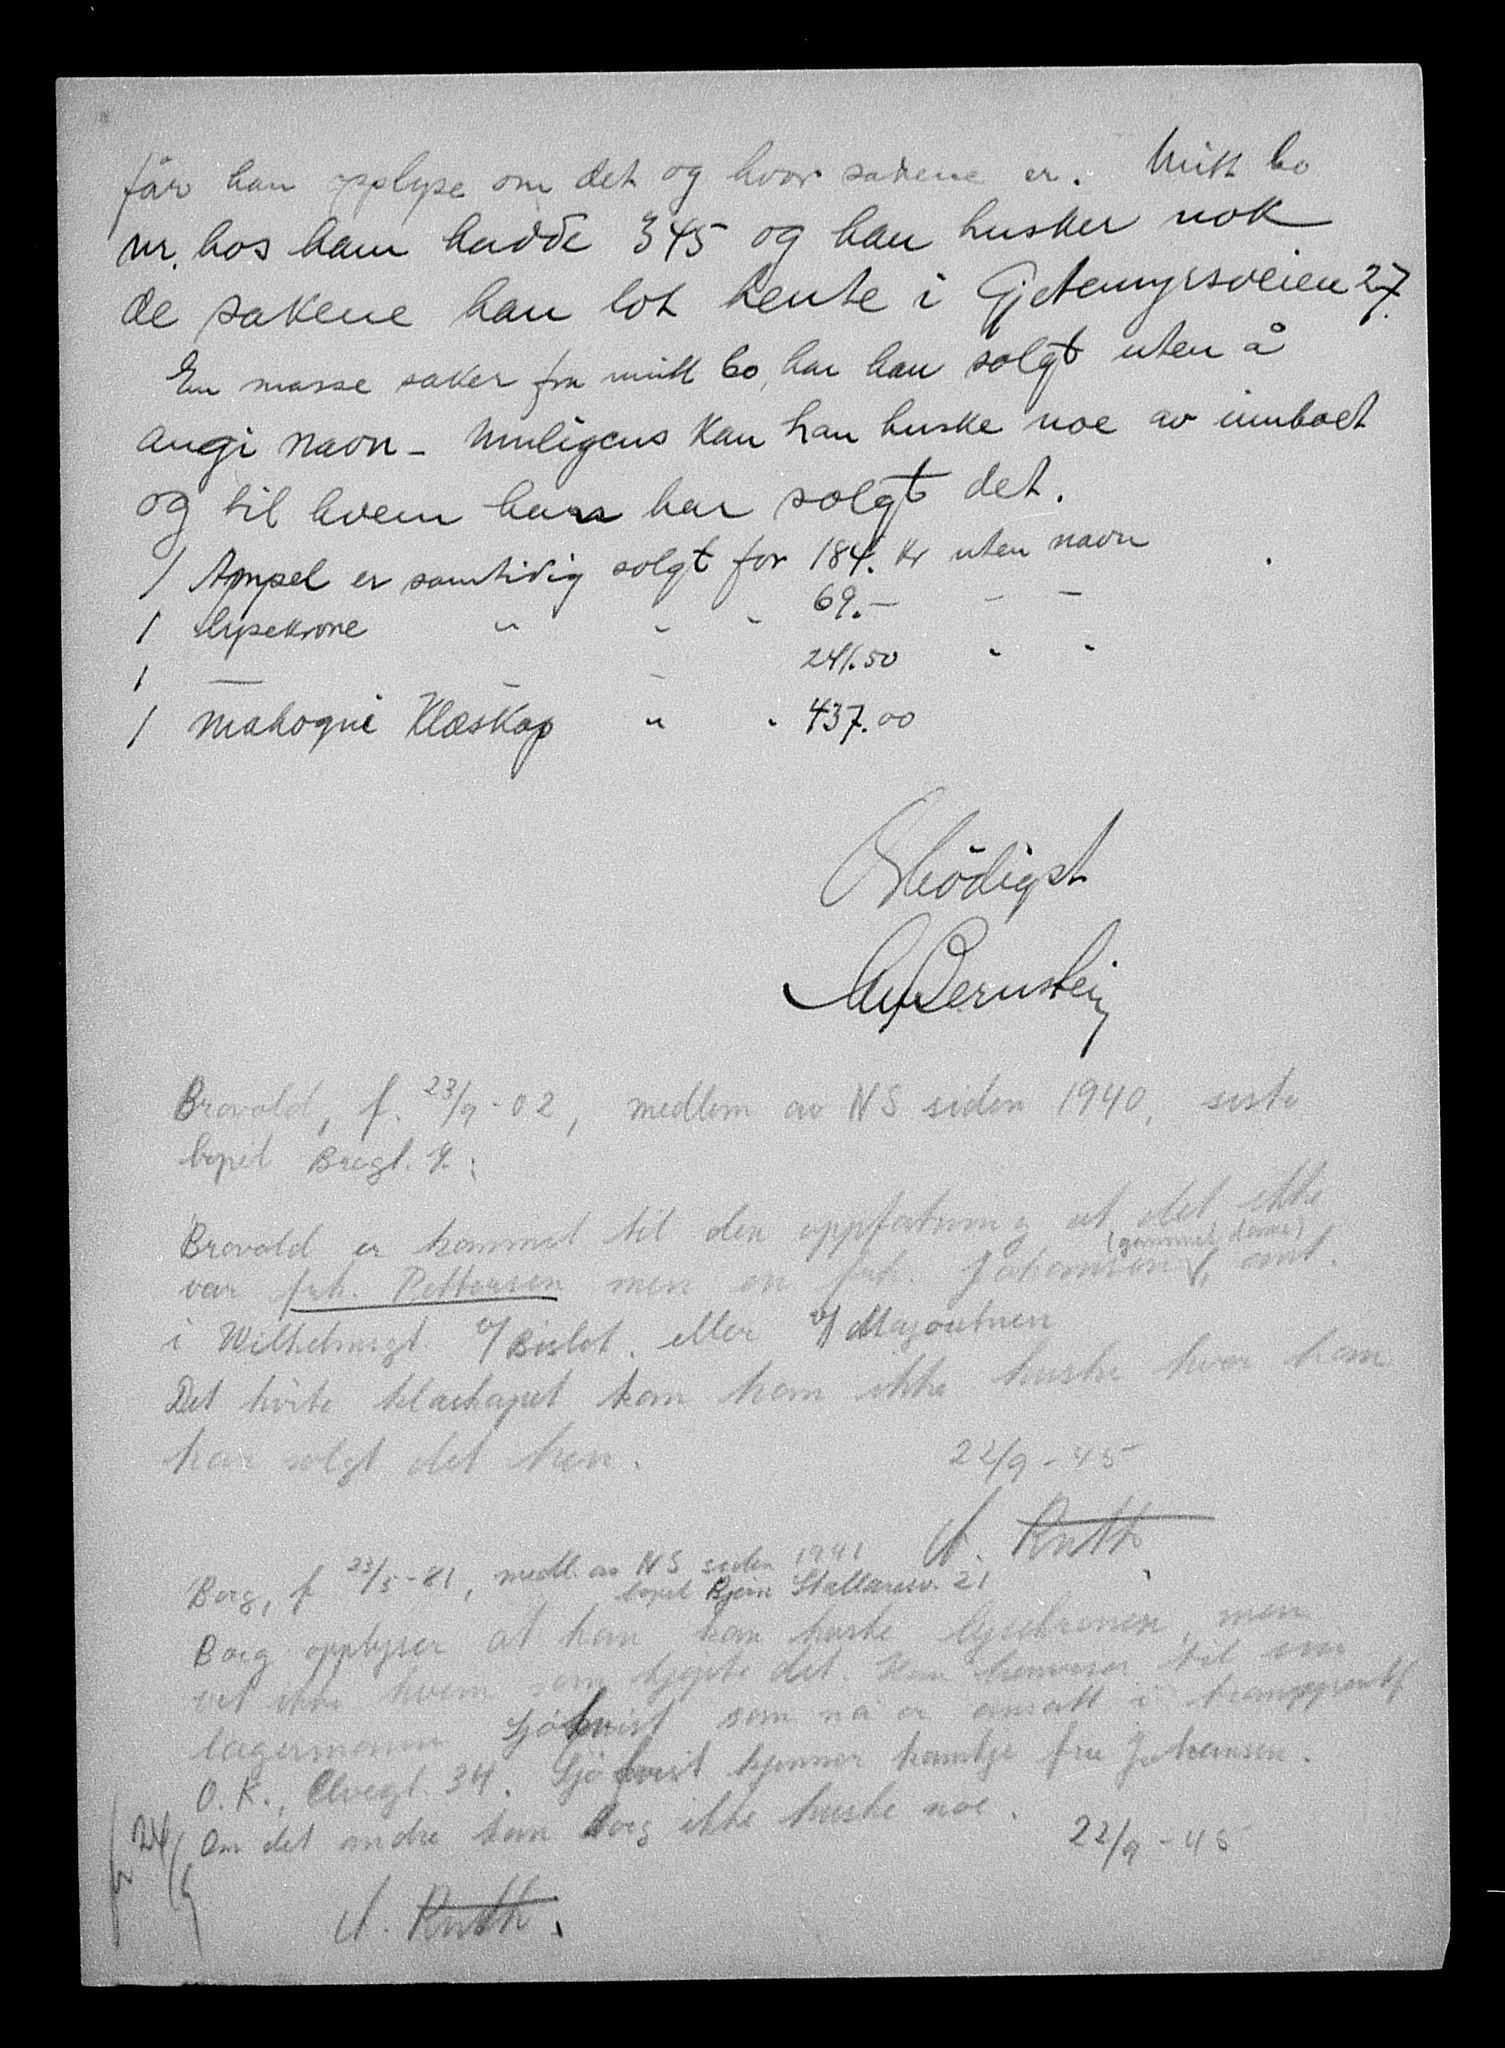 får han opplyse om det og hvor sakene er. Mitt bo
nr. hos ham hadde 345 og han husker nok
de sakene han lot hente i Gjetemyrsveien 27.
En masse saker fra mitt bo, har han solgt uten å
angi navn - muligens kan han huske noe av innboet
og til hvem han har solgt det.
1 Ampel er samtidig solgt for 184. kr uten navn
1 lysekrone " " " 69.- - -
1 — - - 241.50 " "
1 mahogni Klæskap " " 437.00
Ærbödigst
Bernstein
Brovold, f. 23/9-02, medlem av NS siden 1940, siste
bopel
Brovold er kommet til den oppfatning at det ikke
(gammel dame)
var frk. Pettersen men en frk Johansen, ant.
i Wilhelmsgt. v/ Bislet. eller v/ Majorstuen
Det hvite klæskapet kan han ikke huske hvor han
har solgt det hen. 22/9-45
A. Ruth
Borg, f 23/5-81, medl. av NS siden 1941
bopel Bjørn Stallaresv. 21
Borg opplyser at han kan huske lysekronen, men
vet ikke hvem som kjøpte det. Han henviser til sin
lagermann Sjökvist som nå er ansatt i transportf.
O.K., Elvegt. 34. Sjökvist kjenner kanskje fru Johansen.
Om det andre kan Borg ikke huske noe. 22/9-45
24/9
A. Ruth.